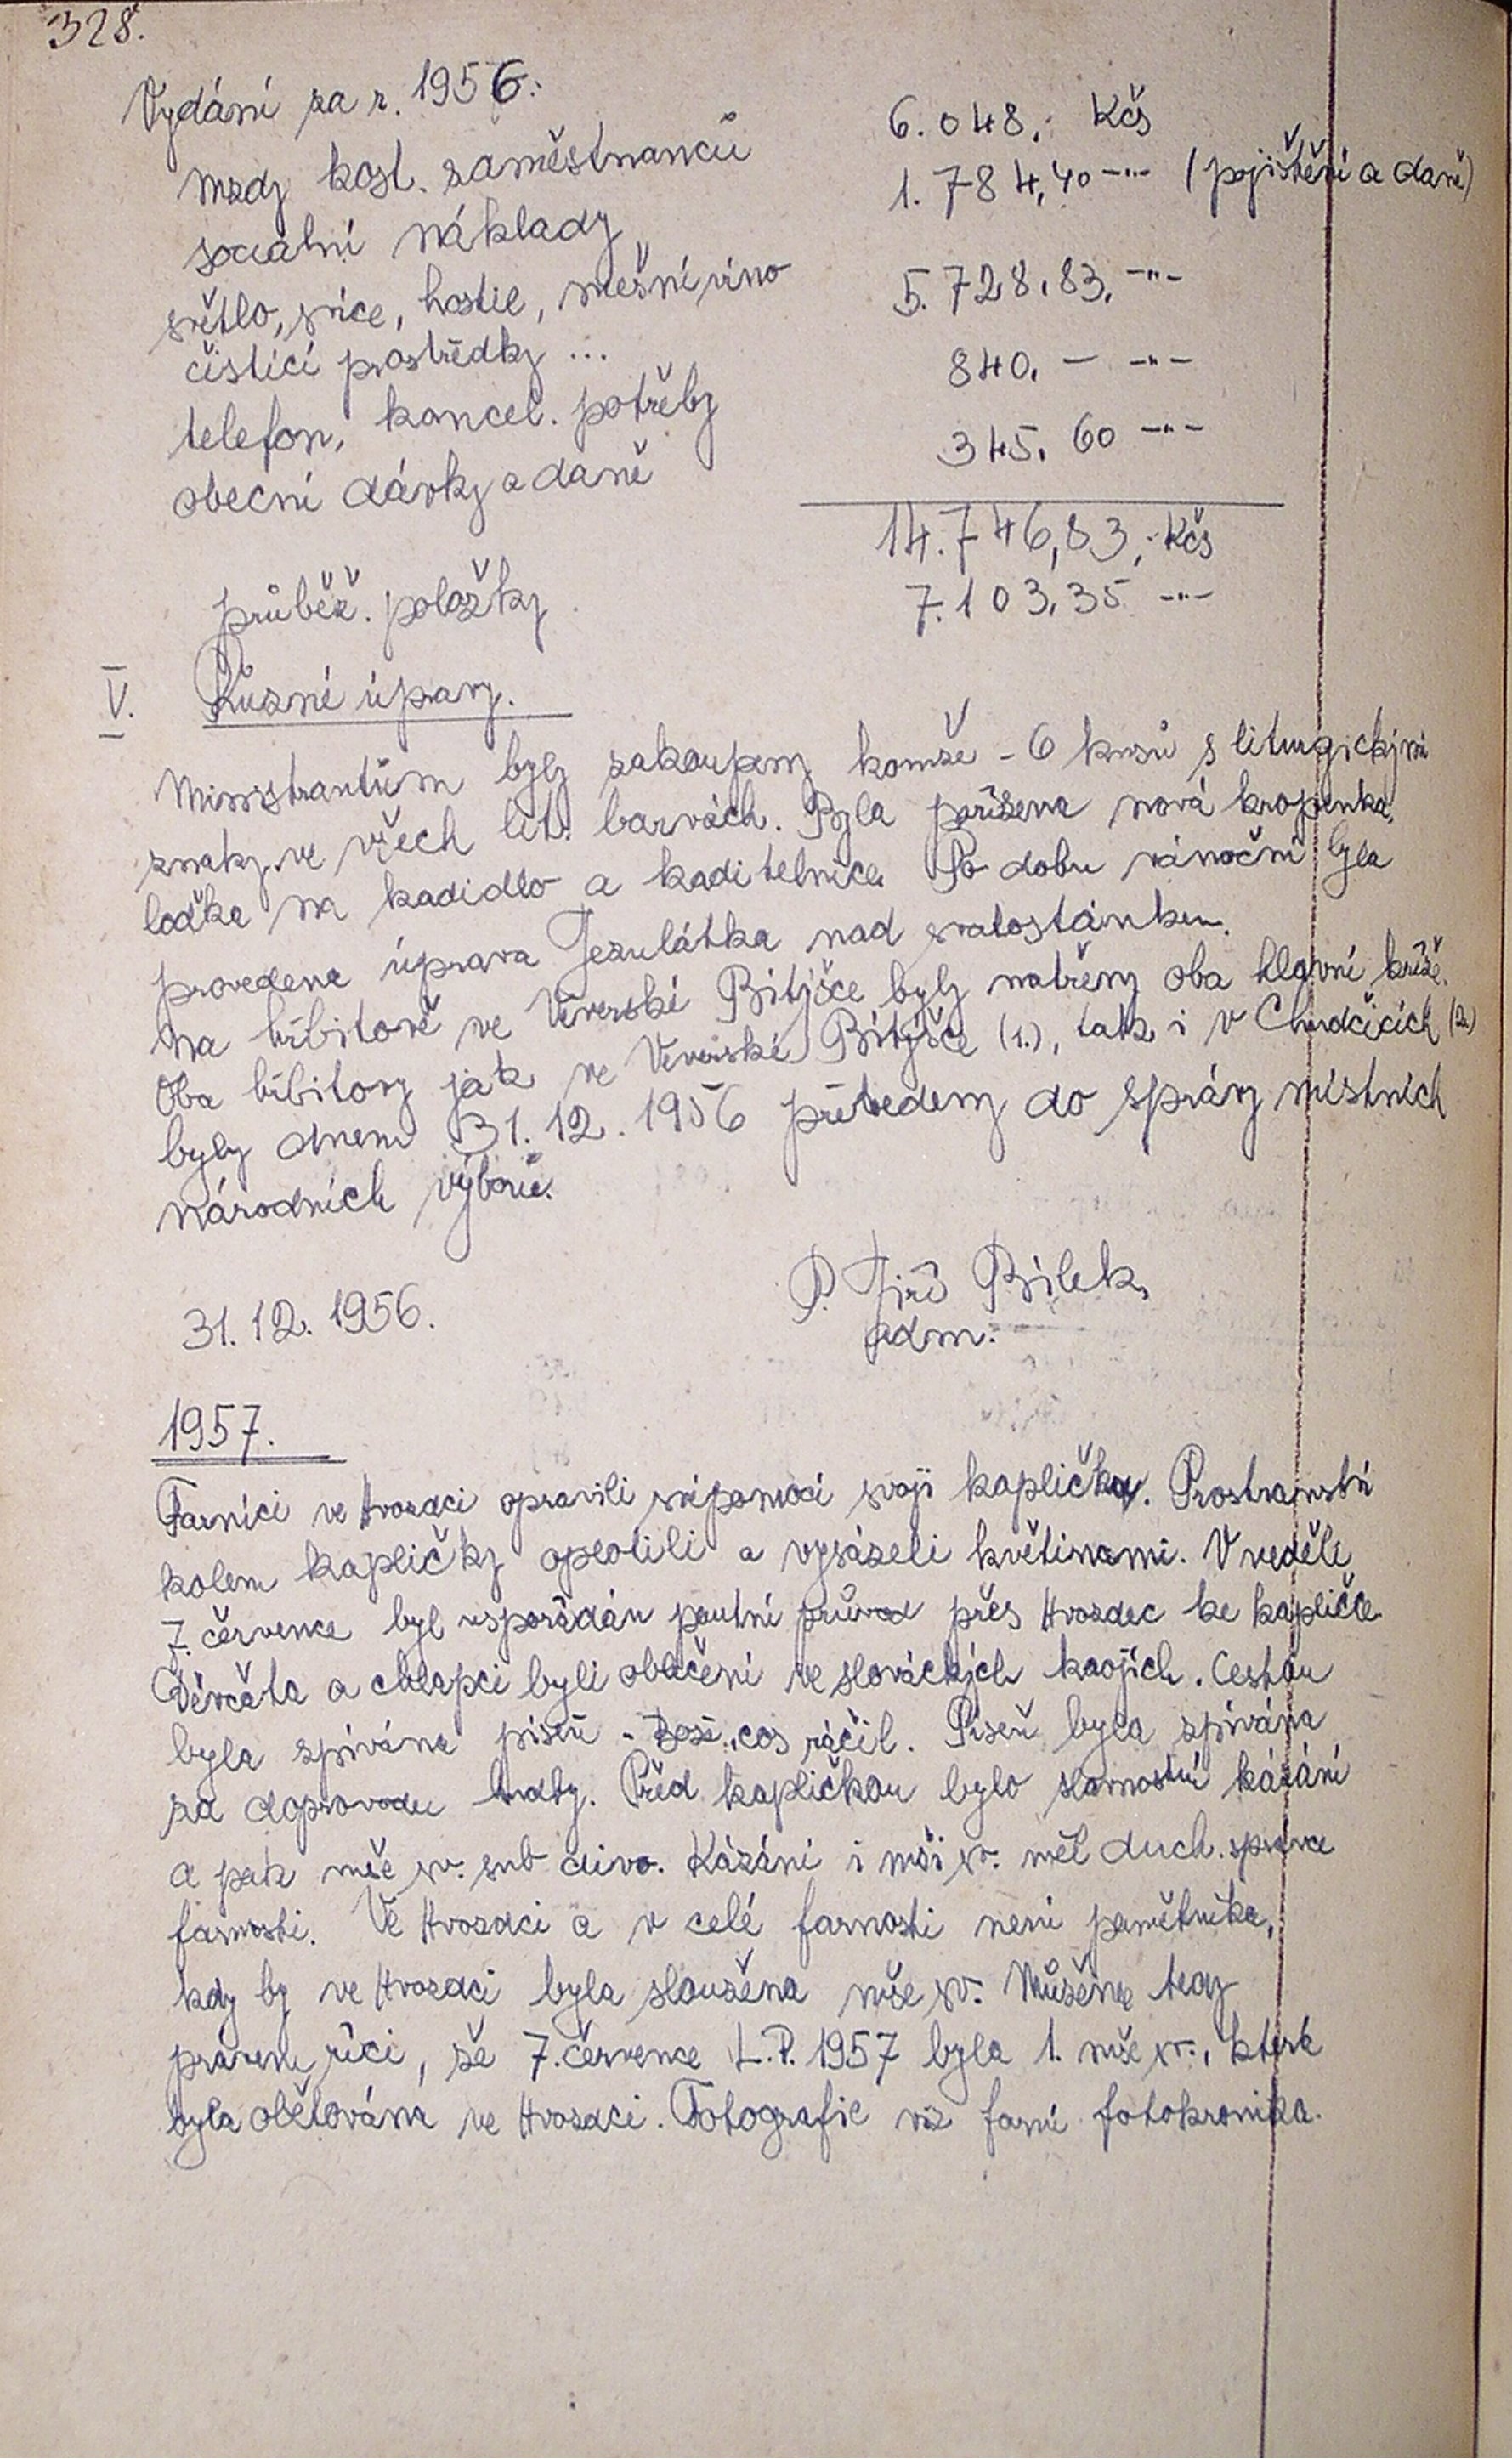 328.
Vydání za r. 1956:
mzdy kost. zaměstnanců 6.048,- Kčs
sociální náklady 1.784,40 -"- (pojištění a daně)
světlo, svíce, hostie, mešní víno
čistící prostředky ... 5.728,83,-"-
telefon, kancel. potřeby 840,- -"-
obecní dávky a daně 345,60 -"-
14.746,83,-Kčs
průběž. položky 7.103,35 -"-
V. Různé úpravy.
Ministrantům byly zakoupeny komže - 6 kusů s liturgickými
znaky ve všech lit. barvách. Byla pořízena nová kropenka,
loďka na kadidlo a kaditelnice. Po dobu vánoční byla
provedena úprava Jezulátka nad svatostánkem.
Na hřbitově ve Veverské Bítýšce byly natřeny oba hlavní kříže.
Oba hřbitovy jak ve Veverské Bítýšce (1.), tak i v Chudčicích (2.)
byly dnem 31.12.1956 převedeny do správy místních
národních výborů.
31.12.1956. P. Jiří Bílek,
adm.
1957.
Farníci ve Hvozdci opravili svépomocí svoji kapličku. Prostranství
kolem kapličky oplotili a vysázeli květinami. V neděli
7. července byl uspořádán poutní průvod přes Hvozdec ke kapličce.
Děvčata a chlapci byli oblečeni ve slováckých krojích. Cestou
byla zpívána píseň - Bože, cos ráčil. Píseň byla zpívána
za doprovodu hudby. Před kapličkou bylo slavnostní kázání
a pak mše sv. sub divo. Kázání i mši sv. měl duch. správce
farnosti. Ve Hvozdci a v celé farnosti není pamětníka,
kdy by ve Hvozdci byla sloužena mše sv. Můžeme tedy
právem říci, že 7. července L.P. 1957 byla 1. mše sv., která
byla obětována ve Hvozdci. Fotografie viz farní fotokronika.